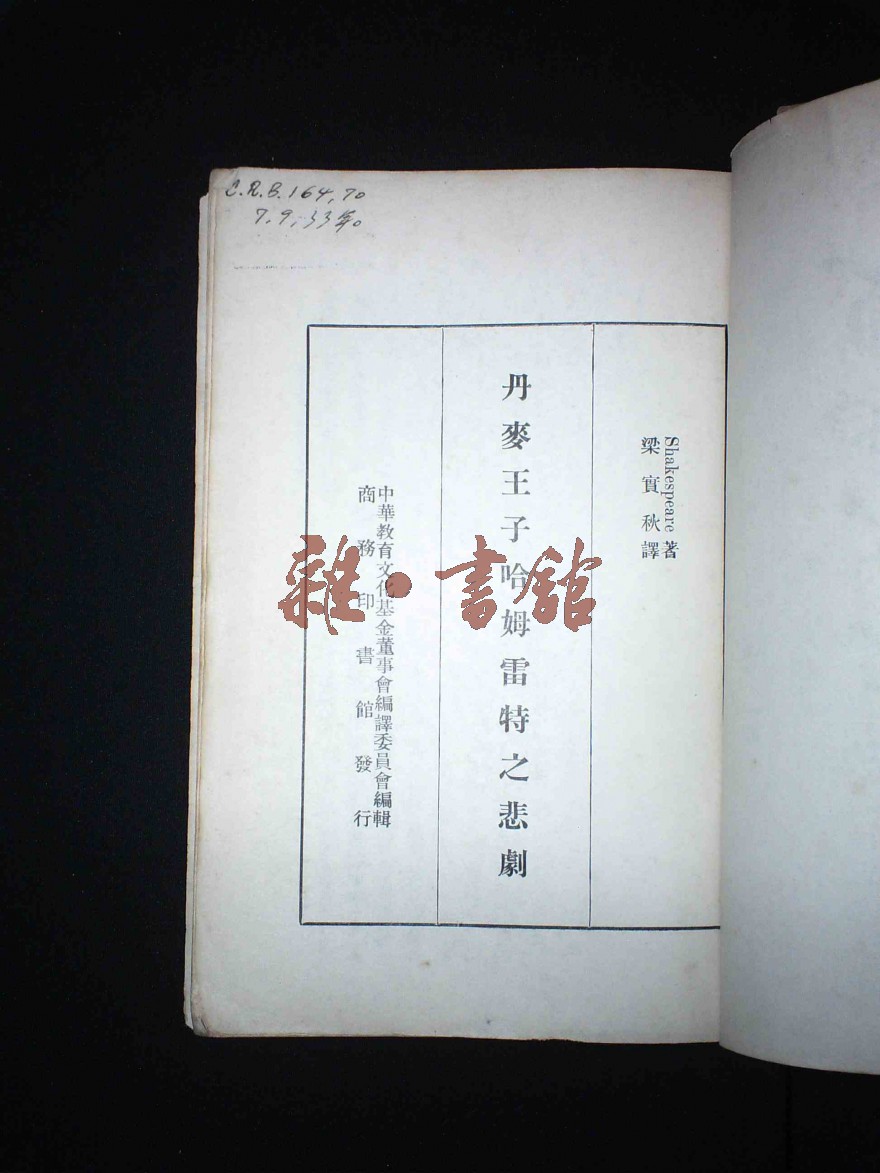 C.R.B.164,70
7.9,33年。
Shakespeare 著
梁實秋譯
丹麥王子哈姆雷特之悲劇
中華教育文化基金董事會編譯委員會編輯
商務印書館發行
雜·書館